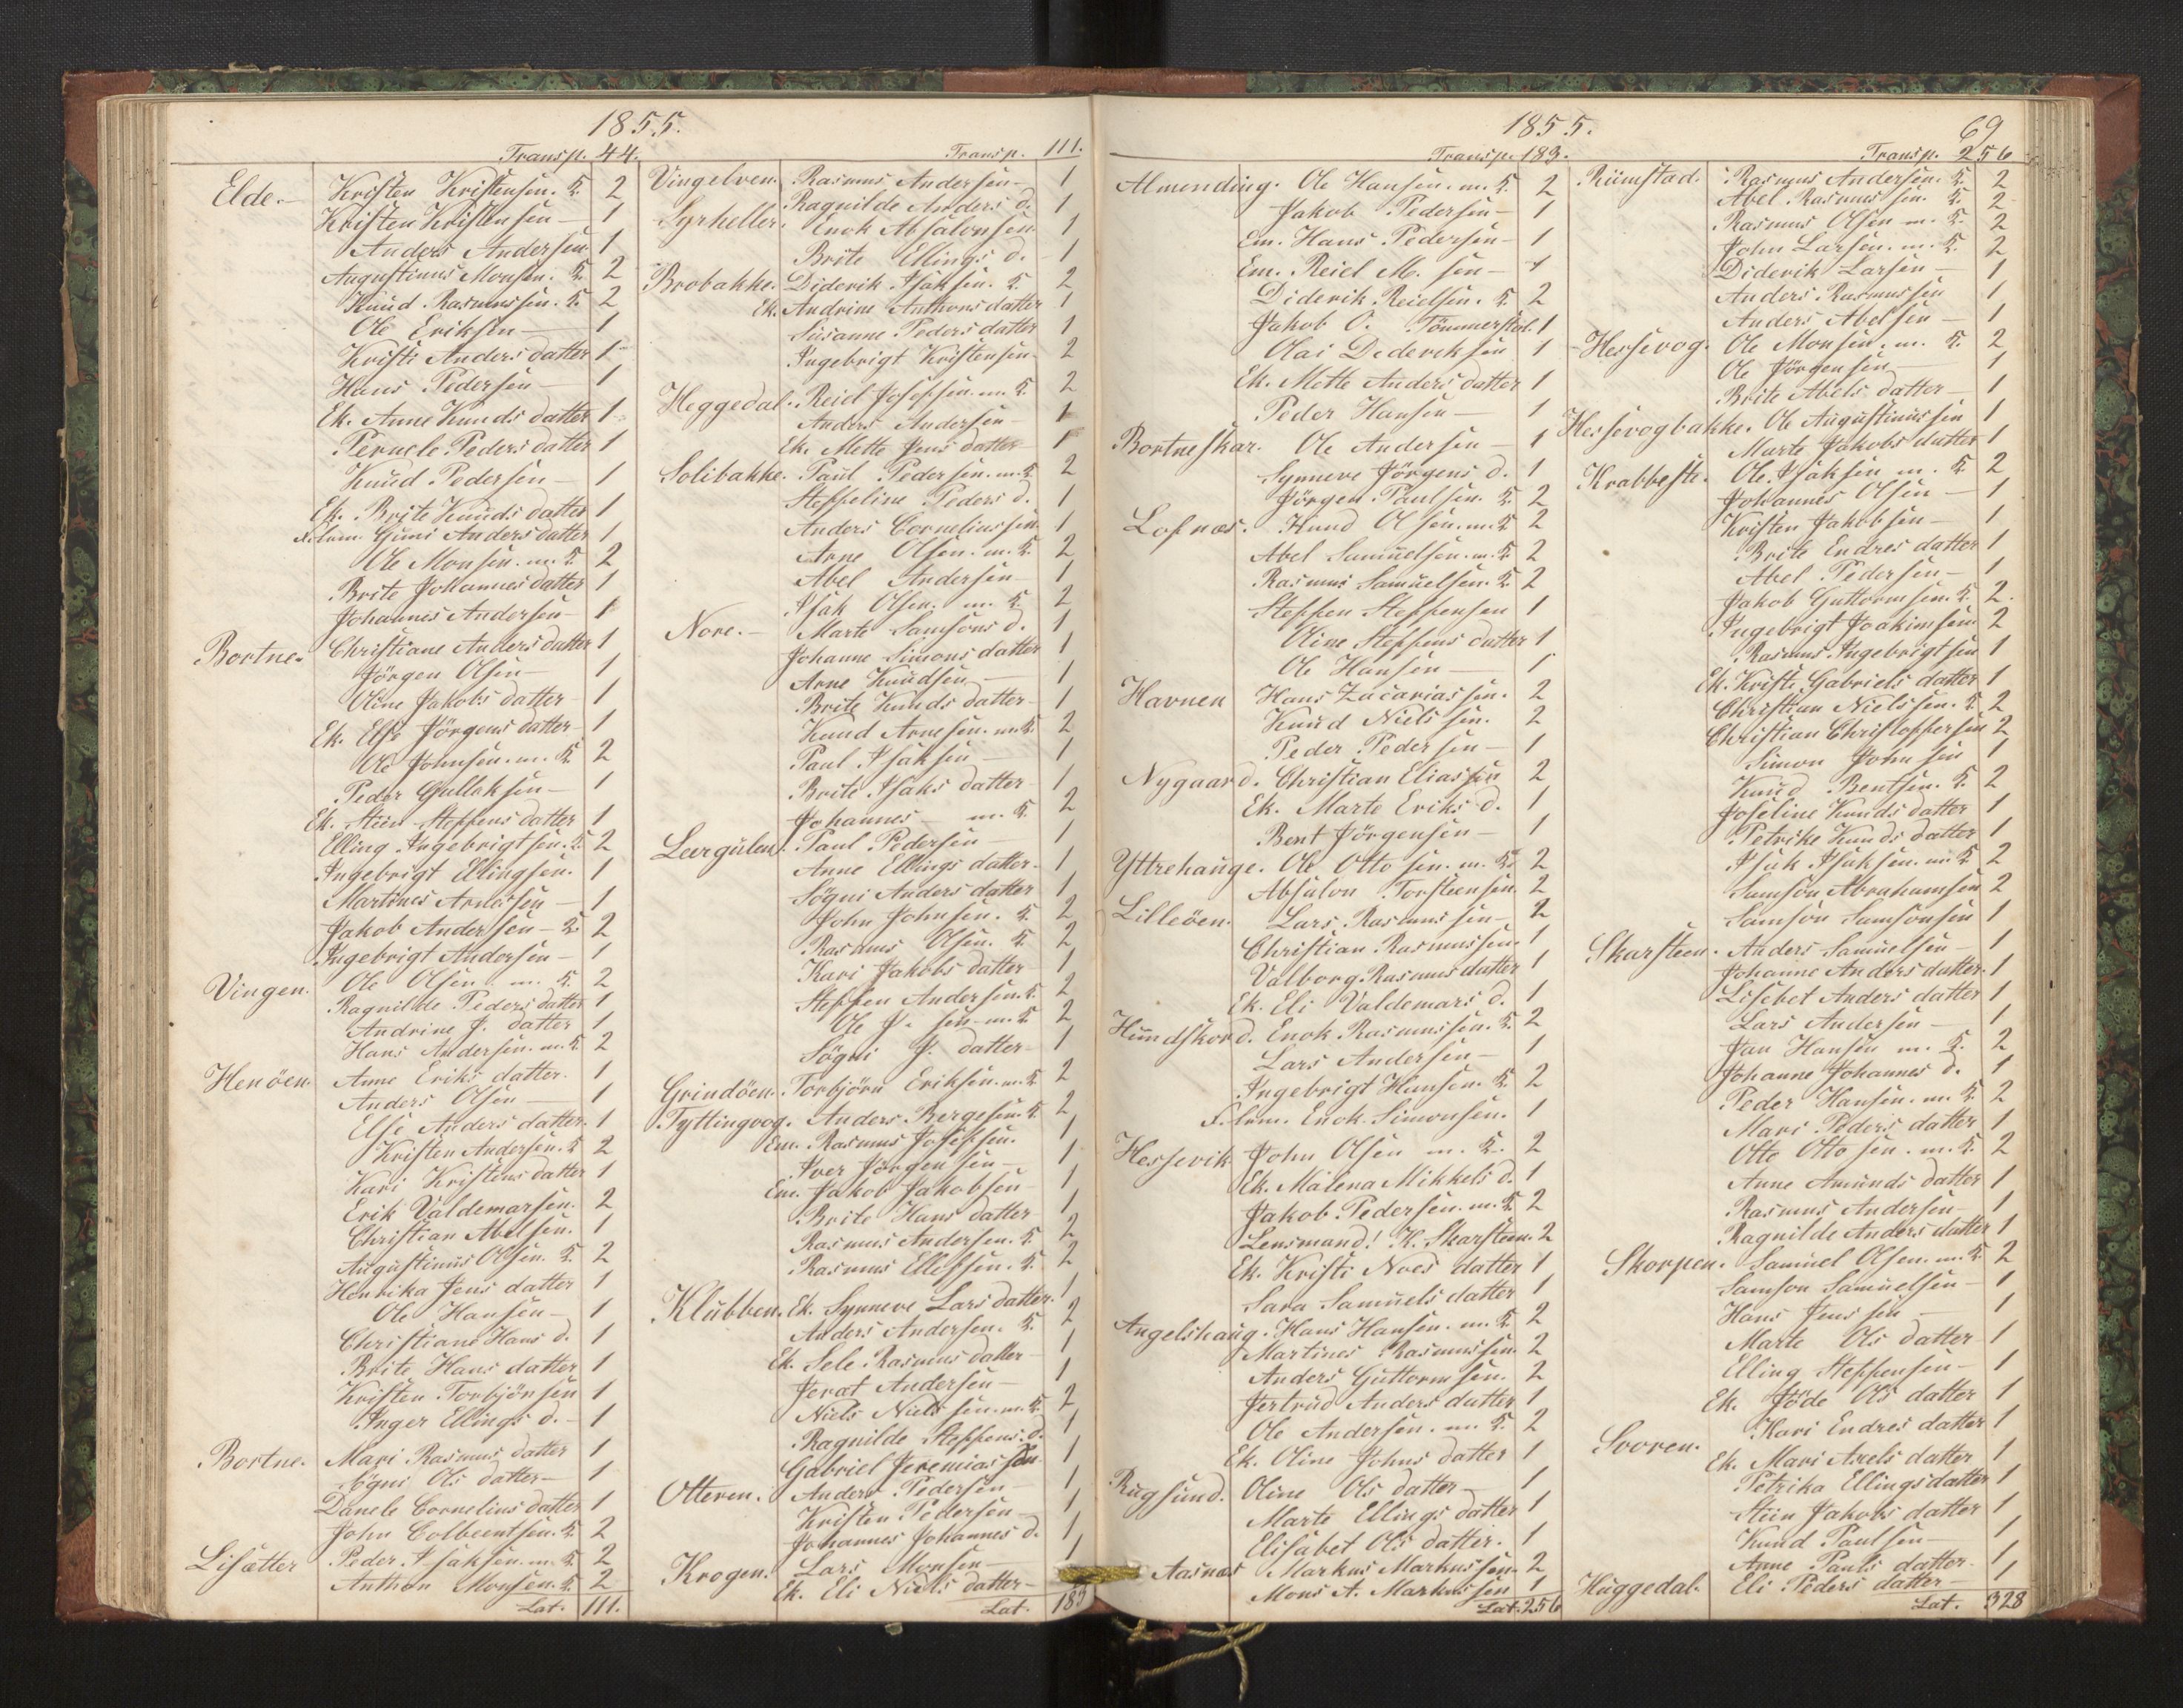 1855.
Transp. 44.
Elde. Kristen Kristensen. K. 2
Kristen Kristensen 1
Anders Andersen 1
Augustinus Monsen. K. 2
Knud Rasmussen. K. 2
Ole Eriksen 1
Kristi Anders datter 1
Hans Pedersen 1
Ek. Anne Knuds datter 1
Pernele Peders datter 1
Knud Pedersen 1
Ek. Brite Knuds datter 1
Guni Anders datter 1
Ole Monsen. m. K. 2
Brite Johannes datter 1
Johannes Andersen 1
Bortne. Christiane Anders datter 1
Jörgen Olsen 1
Oline Jakobs datter 1
Ek. Else Jörgens datter 1
Ole Johnsen. m. K. 2
Peder Gullaksen 1
Ek. Steffens datter 1
Elling Ingebrigtsen. K. 2
Ingebrigt Ellingsen. 1
Martines Arnessen 1
Jakob Andersen K. 2
Ingebrigt Andersen 1
Vingen. Ole Olsen. m. K. 2
Ragnilde Peders datter 1
Andrine J. datter 1
Hans Andersen. m. K. 2
Henöen. Anne Eriks datter. 1
Anders Olsen 1
Else Anders datter. 1
Kristen Andersen. K. 2
Kari Kristens datter 1
Erik Valdemarsen. 2
Christian Abelsen. 1
Augustinus Olsen. K. 2
Henrika Jens datter 1
Ole Hansen 1
Christiane Hans d. 1
Brite Hans datter 1
Kristen Torbjörnsen 1
Inger Ellings d. 1
Bortne. Mari Rasmus datter 1
Sögni Ols datter 1
Danele Cornelius datter 1
John Colbeentsen. K. 2
Lisætter Peder Isaksen. m. K. 2
Anthon Monsen. K. 2
Lat. 111.
Transp. 111.
Vingelven. Rasmus Andersen 1
Ragnilde Anders d. 1
Syrheller. Enok Absalonsen 1
Brite Ellings d. 1
Brobakke. Diderik Isaksen. K. 2
Ek. Andrine Anthons datter 1
Susanne Peders datter 1
Ingebrigt Kristensen 2
Heggedal. Reid Josefsen. m. K. 2
Anders Andersen 1
Ek. Mette Jens datter 1
Solibakke. Paul Pedersen. m. K. 2
Steffeline Peders d. 1
Anders Corneliussen. 1
Arne Olsen. m. K. 2
Abel Andersen 1
Isak Olsen. m. K. 2
Nore. Marte Samsons d. 1
Johanne Simons datter 1
Arne Knudsen 1
Brite Knuds datter 1
Knud Arnesen. m. K. 2
Paul Isaksen 1
Brite Isaks datter 1
Johannes m. K. 2
Leergulen. Paul Pedersen 1
Anne Ellings datter 1
Sögni Anders datter 1
John Johnsen. K. 2
Rasmus Olsen. K. 2
Kari Jakobs datter 1
Steffen Andersen. K. 2
Ole J. sen m. K. 2
Sögni J. datter 1
Grindöen. Torbjörn Eriksen. m. K. 2
Tyttingvog. Anders Bergesen. K. 2
Em. Rasmus Josefsen. 1
Iver Jörgensen 1
Em. Jakob Jakobsen 1
Brite Hans datter 1
Rasmus Andersen. K. 2
Rasmus Ellefsen. K. 2
Klubben. Ek. Synneve Lars datter. 1
Anders Andersen. K. 2
Ek. Sele Rasmus datter 1
Jerat Andersen 1
Niels Nielssen. m. K. 2
Ragnilde Steffens. d. 1
Gabriel Jeremiassen 1
Otteren. Anders Pedersen 1
Kristen Pedersen 1
Johannes Johannes d. 1
Krogen. Lars Monsen 1
Ek. Eli Niels datter
Lat. 183
1855.
69
Transp. 183.
Almending. Ole Hansen. m. K. 2
Jakob Pedersen 1
Em. Hans Pedersen 1
Em. Reiel M. sen 1
Diderik Reielsen. K. 2
Jakob O. Tömmerstøl. 1
Olai Dideriksen 1
Ek. Mette Anders datter 1
Peder Hansen 1
Bortneskar. Ole Andersen 1
Synneve Jörgens d. 1
Jörgen Paulsen. K. 2
Lofnæs. Knud Olsen. m. K. 2
Abel Samuelsen. m. K. 2
Rasmus Samuelsen. K. 2
Steffen Steffensen 1
Oline Steffens datter 1
Ole Hansen 1
Havnen Hans Zacariassen. 2
Knud Nielssen. 2
Peder Pedersen 1
Nygaard. Christian Eliassen 2
Ek. Marte Eriks d. 1
Bent Jörgensen 1
Yttrehauge. Ole Ottosen. m. K. 2
Absalon Torsteensen. 2
Lilleöen. Lars Rasmussen 2
Christian Rasmussen. 1
Valborg Rasmus datter 1
Ek. Eli Valdemars d. 1
Hundskord. Enok Rasmussen. K. 2
Lars Andersen 1
Ingebrigt Hansen. K. 2
Enok Simonsen. 1
Hessevik John Olsen m. K. 2
Ek. Malena Mikkels d. 1
Jakob Pedersen. m. K. 2
Lensmand! K. Skarsteen. 2
Ek. Kristi Noes datter 1
Sara Samuels datter 1
Angelshaug. Hans Hansen. m. K. 2
Martines Rasmussen. 2
Anders Guttormsen. 2
Jertrud Anders datter 1
Ole Andersen. m. K. 2
Ek. Oline Johns datter 1
Rugsund. Oline Ols datter 1
Marte Ellings datter 1
Elisabet Ols datter. 1
Aasnæs Markus Markussen. 2
Mons A. Markussen 1
Lat. 256
Transp. 256
Rimstad. Rasmus Andersen. K. 2
Abel Rasmussen. K. 2
Rasmus Olsen m. K. 2
John Larsen. m. K. 2
Diderik Larsen 1
Anders Rasmussen 1
Anders Abelsen 1
Hessevog. Ole Monsen. m. K. 2
Ole Jörgensen 1
Brite Abels datter 1
Hessevogbakke. Ole Augustinussen 1
Marte Jakobs datter 1
Krabbeste. Ole Isaksen m. K. 2
Johannes Olsen 1
Kristen Jakobsen 1
Brite Endres datter 1
Abel Pedersen 1
Jakob Guttormsen. K. 2.
Ingebrigt Joakimsen 2
Rasmus Ingebrigtsen 1
Ek. Kristi Gabriels datter 1
Christian Nielssen. K. 2
Christian Christoffersen 2
Simon Johnsen 1
Knud Bentsen. K. 2
Joseline Knuds datter 1
Petrike Knuds datter 1
Isak Isaksen. m. K. 2
Samson Abrahamsen 2
Samson Samsonsen 1
Skarsteen. Anders Samuelsen 1
Johanne Anders datter. 1
Lisebet Anders datter 1
Lars Andersen 1
Jan Hansen m. K. 2
Johanne Johannes d. 1
Peder Hansen. m. K. 2
Mari Peders datter 1
Otto Ottosen. m. K. 2
Anne Amunds datter 1
Rasmus Andersen 1
Ragnilde Anders datter 1
Skorpen. Samuel Olsen. m. K. 2
Samson Samuelsen 1
Hans Jenssen 1
Marte Ols datter 1
Elling Steffensen 1
Ek. Jöde Ols datter 1
Kari Endres datter 1
Svoren. Ek. Mari Axels datter 1
Petrika Ellings datter 1
Jakobs datter 1
Knud Paulsen 1
Anne Pauls datter 1
Huggedal. Eli Peders datter 1
Lat. 328